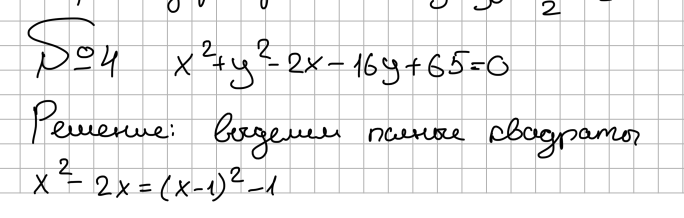 №4 x²+y²-2x-16y+65=0
Решение: выделим полные квадраты
x²-2x=(x-1)²-1